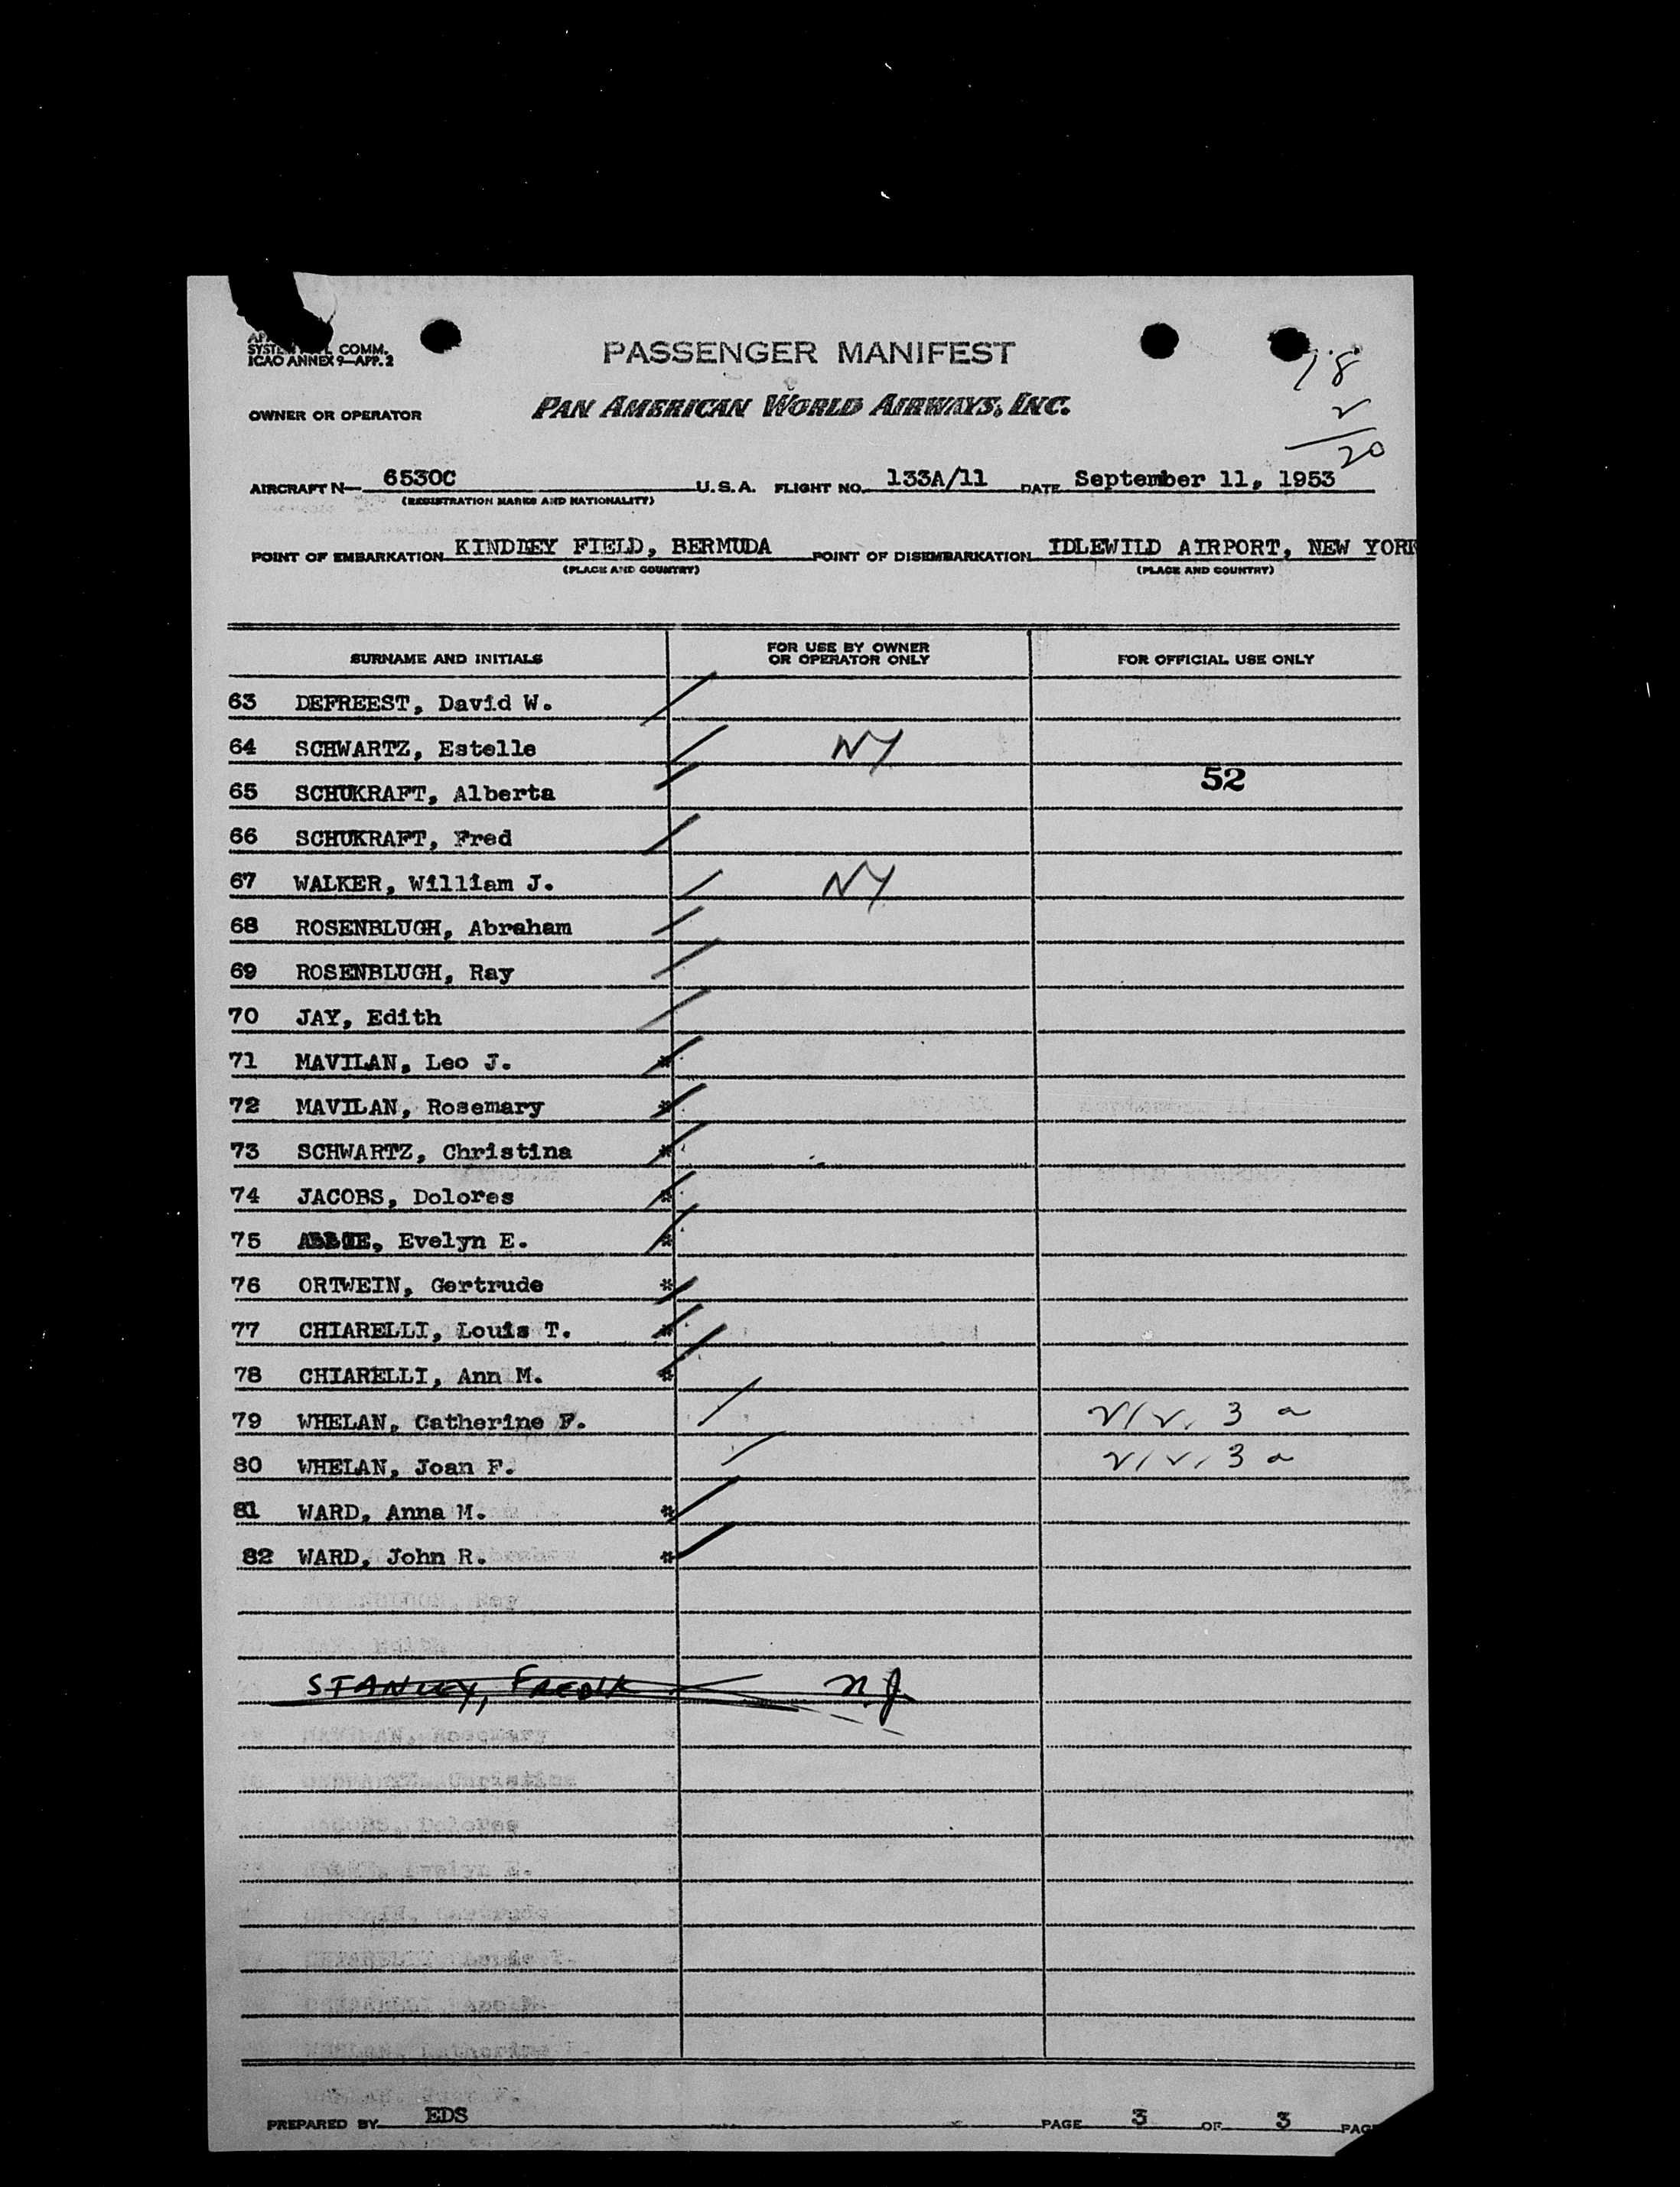 SYSTEM COMM.
ICAO ANNEX 9—APP. 2
PASSENGER MANIFEST
18
2
20
OWNER OR OPERATOR PAN AMERICAN WORLD AIRWAYS, INC.
AIRCRAFT N— 6530C U.S.A. FLIGHT NO. 133A/11 DATE September 11, 1953
(REGISTRATION MARKS AND NATIONALITY)
POINT OF EMBARKATION KINDLEY FIELD, BERMUDA POINT OF DISEMBARKATION IDLEWILD AIRPORT, NEW YORK
(PLACE AND COUNTRY) (PLACE AND COUNTRY)
SURNAME AND INITIALS FOR USE BY OWNER OR OPERATOR ONLY FOR OFFICIAL USE ONLY
63 DEFREEST, David W.
64 SCHWARTZ, Estelle NY
52
65 SCHUKRAFT, Alberta
66 SCHUKRAFT, Fred
67 WALKER, William J. NY
68 ROSENBLUGH, Abraham
69 ROSENBLUGH, Ray
70 JAY, Edith
71 MAVILAN, Leo J. *
72 MAVILAN, Rosemary *
73 SCHWARTZ, Christina *
74 JACOBS, Dolores *
75 Evelyn E. *
76 ORTWEIN, Gertrude *
77 CHIARELLI, Louis T. *
78 CHIARELLI, Ann M. *
79 WHELAN, Catherine F. 3 a
80 WHELAN, Joan F. 3 a
81 WARD, Anna M. *
82 WARD, John R. *
STANLEY, FREDK N.J.
PREPARED BY EDS PAGE 3 OF 3